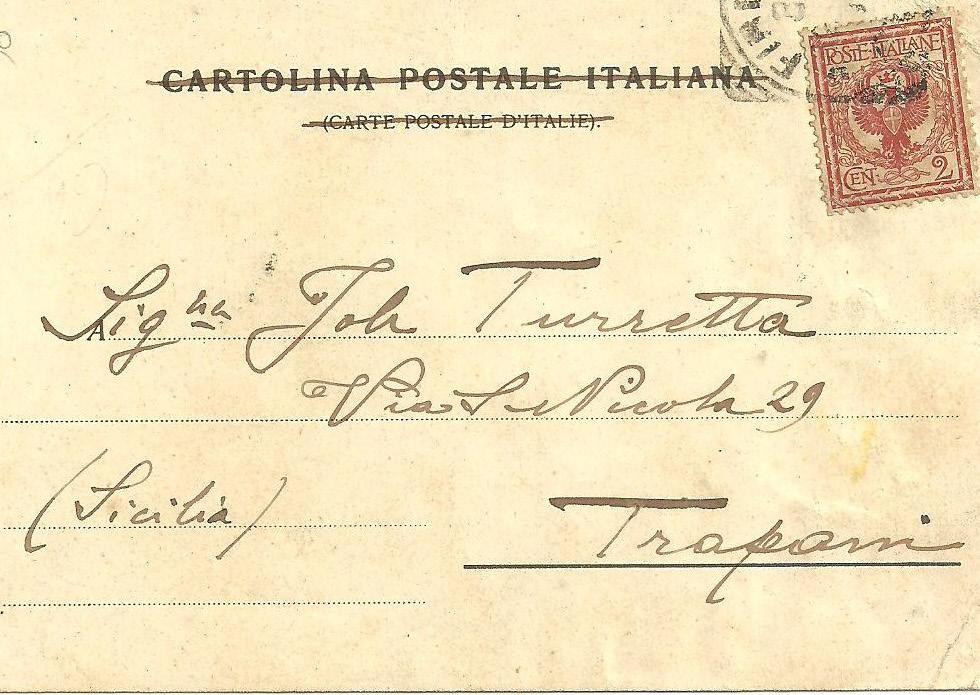 CARTOLINA POSTALE ITALIANA
(CARTE POSTALE D'ITALIE).
POSTE ITALIANE
CEN. 2
A Sig.na Tola Turretta
Via S. Nicola 29
(Sicilia)
Trapani